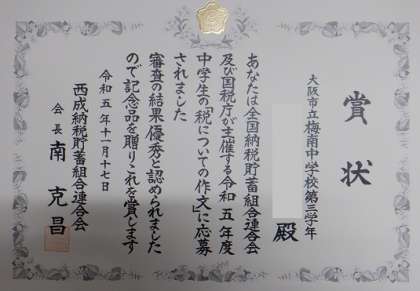 賞状
大阪市立梅南中学校第三学年
殿
あなたは全国納税貯蓄組合連合会
及び国税庁が主催する令和五年度
中学生の「税についての作文」に応募
されました
審査の結果優秀と認められました
ので記念品を贈りこれを賞します
令和五年十一月十七日
西成納税貯蓄組合連合会
会長 南克昌